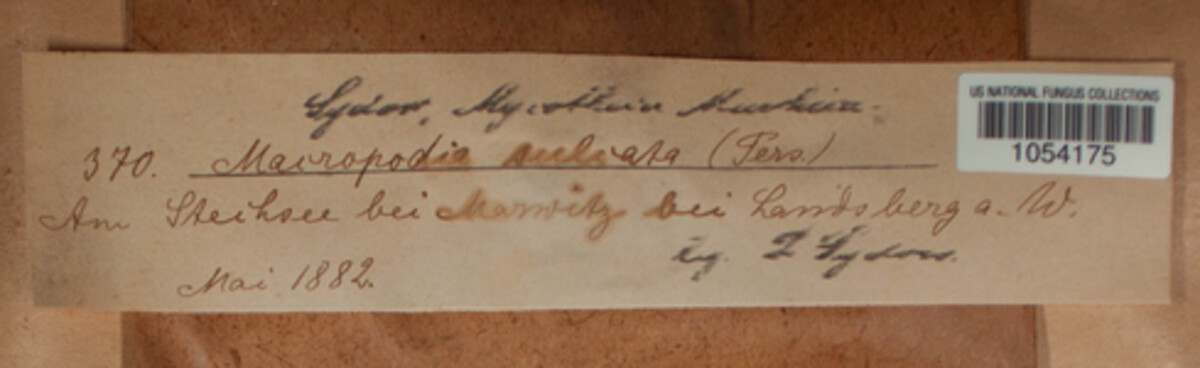 Sydow, Mycotheca Marchica.
US NATIONAL FUNGUS COLLECTIONS
1054175
370. Macropodia sulcata (Pers.)
Am Stechsee bei Marwitz bei Landsberg a. W.
leg. P Sydow.
Mai 1882.